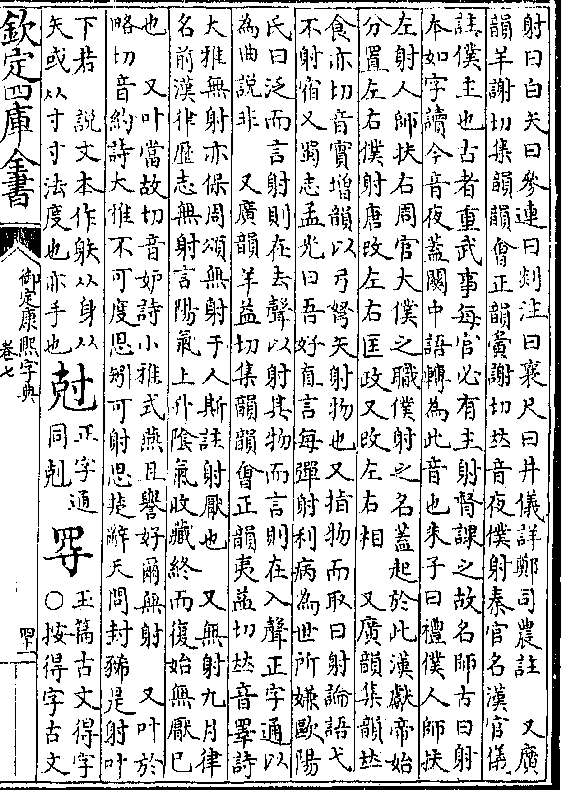 射曰白矢曰參連曰剡注曰襄尺曰井儀詳鄭司農註　又廣
韻羊謝切集韻韻會正韻夤謝切𠀤音夜僕射秦官名漢官儀
註僕主也古者重武事每官必有主射督課之故名師古曰射
本如字讀今音夜蓋關中語轉為此音也朱子曰禮僕人師扶
左射人師扶右周官大僕之職僕射之名蓋起於此漢獻帝始
分置左右僕射唐改左右匡政又改左右相　又廣韻集韻𠀤
食亦切音實增韻以弓弩矢射物也又指物而取曰射論語弋
不射宿又蜀志孟光曰吾好直言每彈射利病為世所嫌歐陽
氏曰泛而言射則在去聲以射其物而言則在入聲正字通以
為曲說非　又廣韻羊益切集韻韻會正韻夷益切𠀤音睪詩
大雅無射亦保周頌無射于人斯註射厭也　又無射九月律
名前漢律歷志無射言陽氣上升陰氣收藏終而復始無厭已
也　又叶當故切音妒詩小雅式燕且譽好爾無射　又叶於
略切音約詩大雅不可度思矧可射思楚辭天問封豨是射叶
下若　說文本作䠶从身从
矢或从寸寸法度也亦手也
尅
正字通
同剋
㝵
玉篇古文得字
○按得字古文
欽定四庫全書
御定康熙字典
卷七
四十